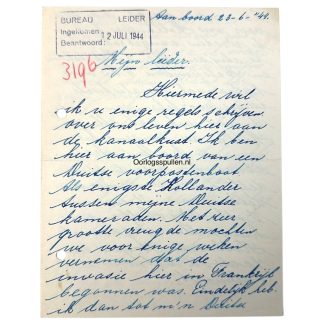 BUREAU LEIDER
Ingekomen: 12 JULI 1944
Beantwoord:
Aan boord 23-6-'44.
3196
Mijn leider.
Hiermede wil
ik u enige regels schrijven
over ons leven hier aan
de kanaalkust. Ik ben
Oorlogsspullen.nl
hier aan boord van een
Duitse voorpostenboot
als enigste Hollander
tussen mijne Duitse
kameraden. Met zeer
grootte vreugde mochten
we voor enige weken
vernemen dat de
invasie hier in Frankrijk
begonnen was. Eindelijk heb
ik dan tot m'n Duitse